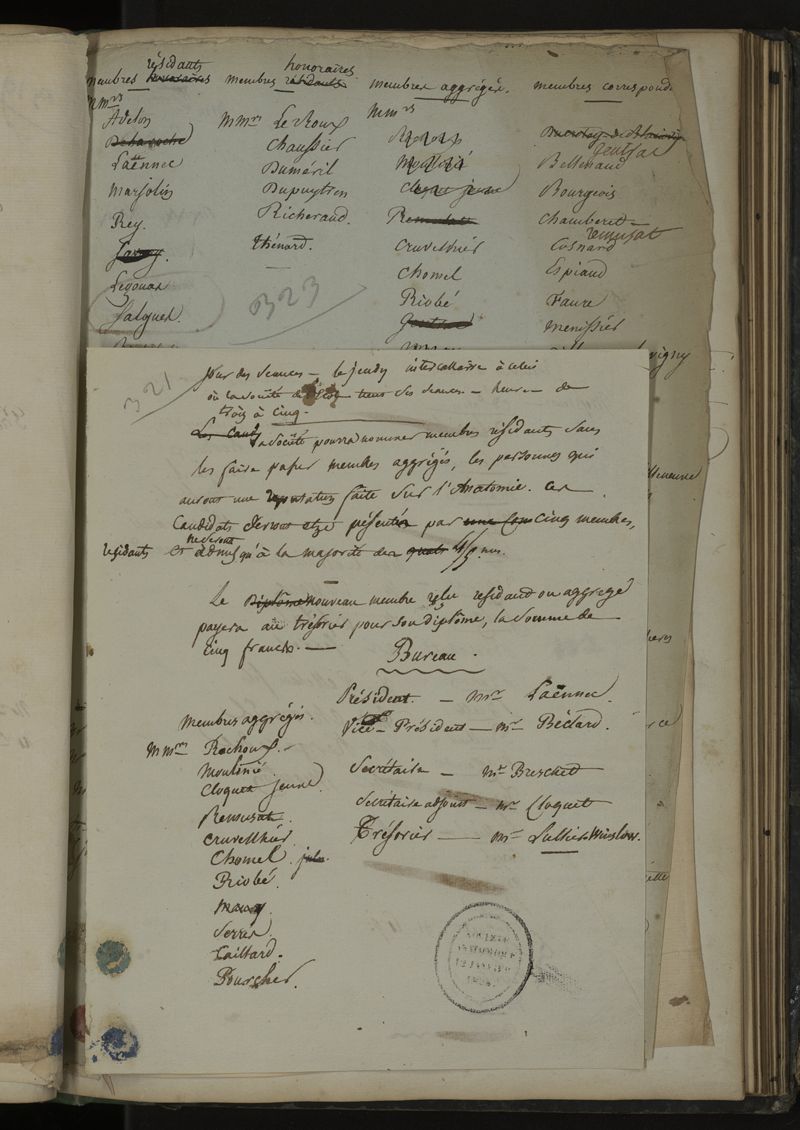 résidants honoraires
membres honoraires membres résidants membres aggrégés. membres correspond
mmrs
Adelon
Delaroche
Laënnec
Marjolin
Rey.
Legouas
Jalquer.
mmrs Le Roux
Chaussier
Duméril
Dupuytren
Richerand.
thénard.
mmrs
Rochoux
Moulinié
Cloquet jeune
Remusat
Cruvelhier
Chomel
Riobé
gentrac
Bellenand
Bourgeois
Chamberet
remusat
Cosnard
Espiaud
Faure
Menissier
vigny
323
321
jour des séances – le jeudy intercallaire à celui
où la société d'Ecole tient ses séances – heure – de
trois à cinq.
Les cand la société pourra nommer membres résidants sans
les faire passer membres aggrégés, les personnes qui
auront une reputation faite sur l'Anatomie. Ces
Candidats devront etre présentés par une cinq membres,
ne seront
résidants et admis qu'à la majorité des quatre 4/5 mes.
Le Diplôme nouveau membre élu residant ou aggregé
payera au trésorier pour son diplôme, la somme de
Cinq francs. —
Bureau.
Président. — mr Laënnec.
Vice – Président — mr Béclard.
Secrétaire — mr Breschet
Secrétaire adjoint — mr Cloquet
Trésorier — mr Lullier Winslow.
membres aggrégés.
mmrs Rochoux.
Moulinié
Cloquet jeune
Remusat
Cruvelhier
Chomel
Riobé.
Serres
Taillard.
Fouscher.
SOCIÉTÉ
ANATOMIQUE
12 JANVIER